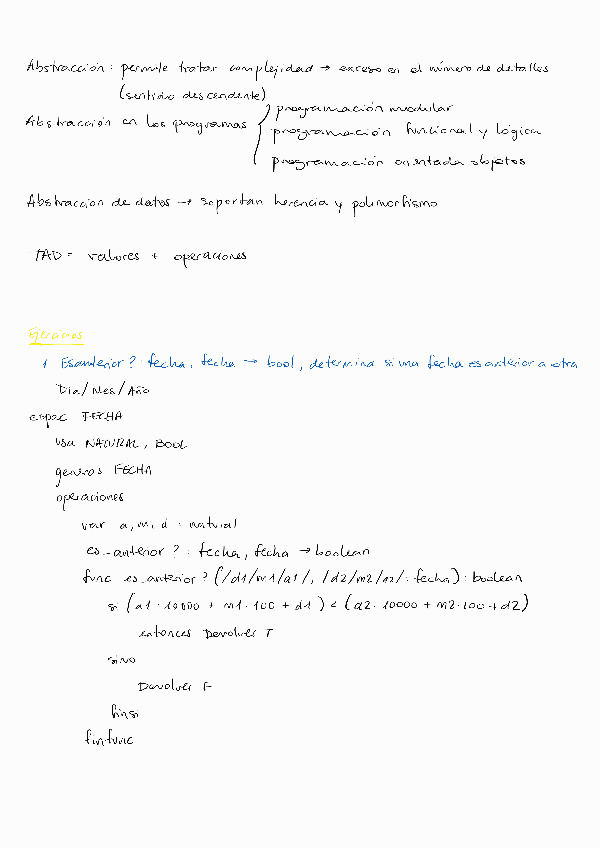 Abstracción: permite tratar complejidad → exceso en el número de detalles
(sentido descendente)
Abstracción en los programas
programación modular
programación funcional y lógica
programación orientada objetos
Abstracción de datos → soportan herencia y polimorfismo
TAD = valores + operaciones
Ejercicios
1 Esanterior? : fecha, fecha → bool, determina si una fecha es anterior a otra
Dia/Mes/Año
espec FECHA
usa NATURAL, BOOL
generos FECHA
operaciones
var a, m, d : natural
es_anterior? : fecha, fecha → boolean
func es_anterior? (/d1/m1/a1/, /d2/m2/a2/ : fecha) : boolean
si (a1·10000 + m1·100 + d1) < (a2·10000 + m2·100 + d2)
entonces Devolver T
sino
Devolver F
finsi
finfunc